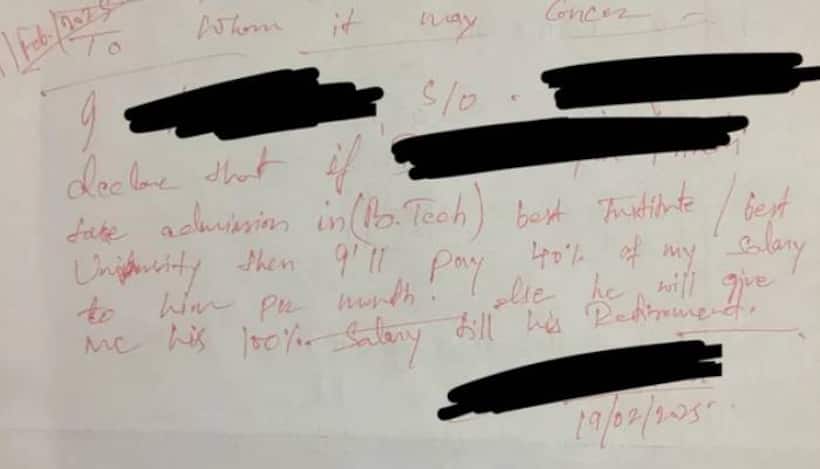 Feb. 2025
To Whom it may Concer
I S/O.
declare that if
take admission in (B.Tech) best Institute / best
University then I'll pay 40% of my Salary
to him per month. else he will give
me his 100% Salary till his Retirement.
19/02/2025